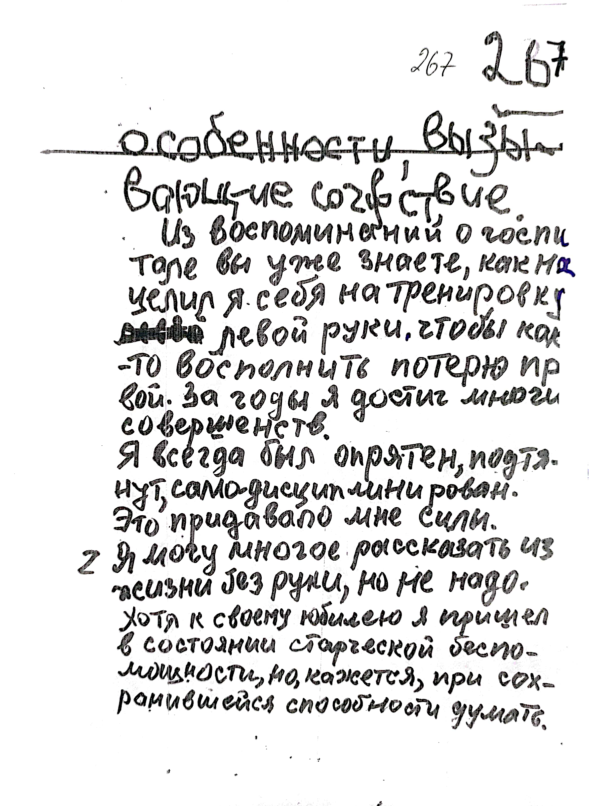 267 267
особенности, вызы-
вающие сочувствие.
Из воспоминаний о госпи
тале вы уже знаете, как на
целил я себя на тренировку
левой руки, чтобы как
-то восполнить потерю пр
вой. За годы я достиг многи
совершенств.
Я всегда был опрятен, подтя-
нут, самодисциплинирован.
Это придавало мне силы.
Z Я могу многое рассказать из
жизни без руки, но не надо.
Хотя к своему юбилею я пришел
в состоянии старческой беспо-
мощности, но, кажется, при сох-
ранившейся способности думать.